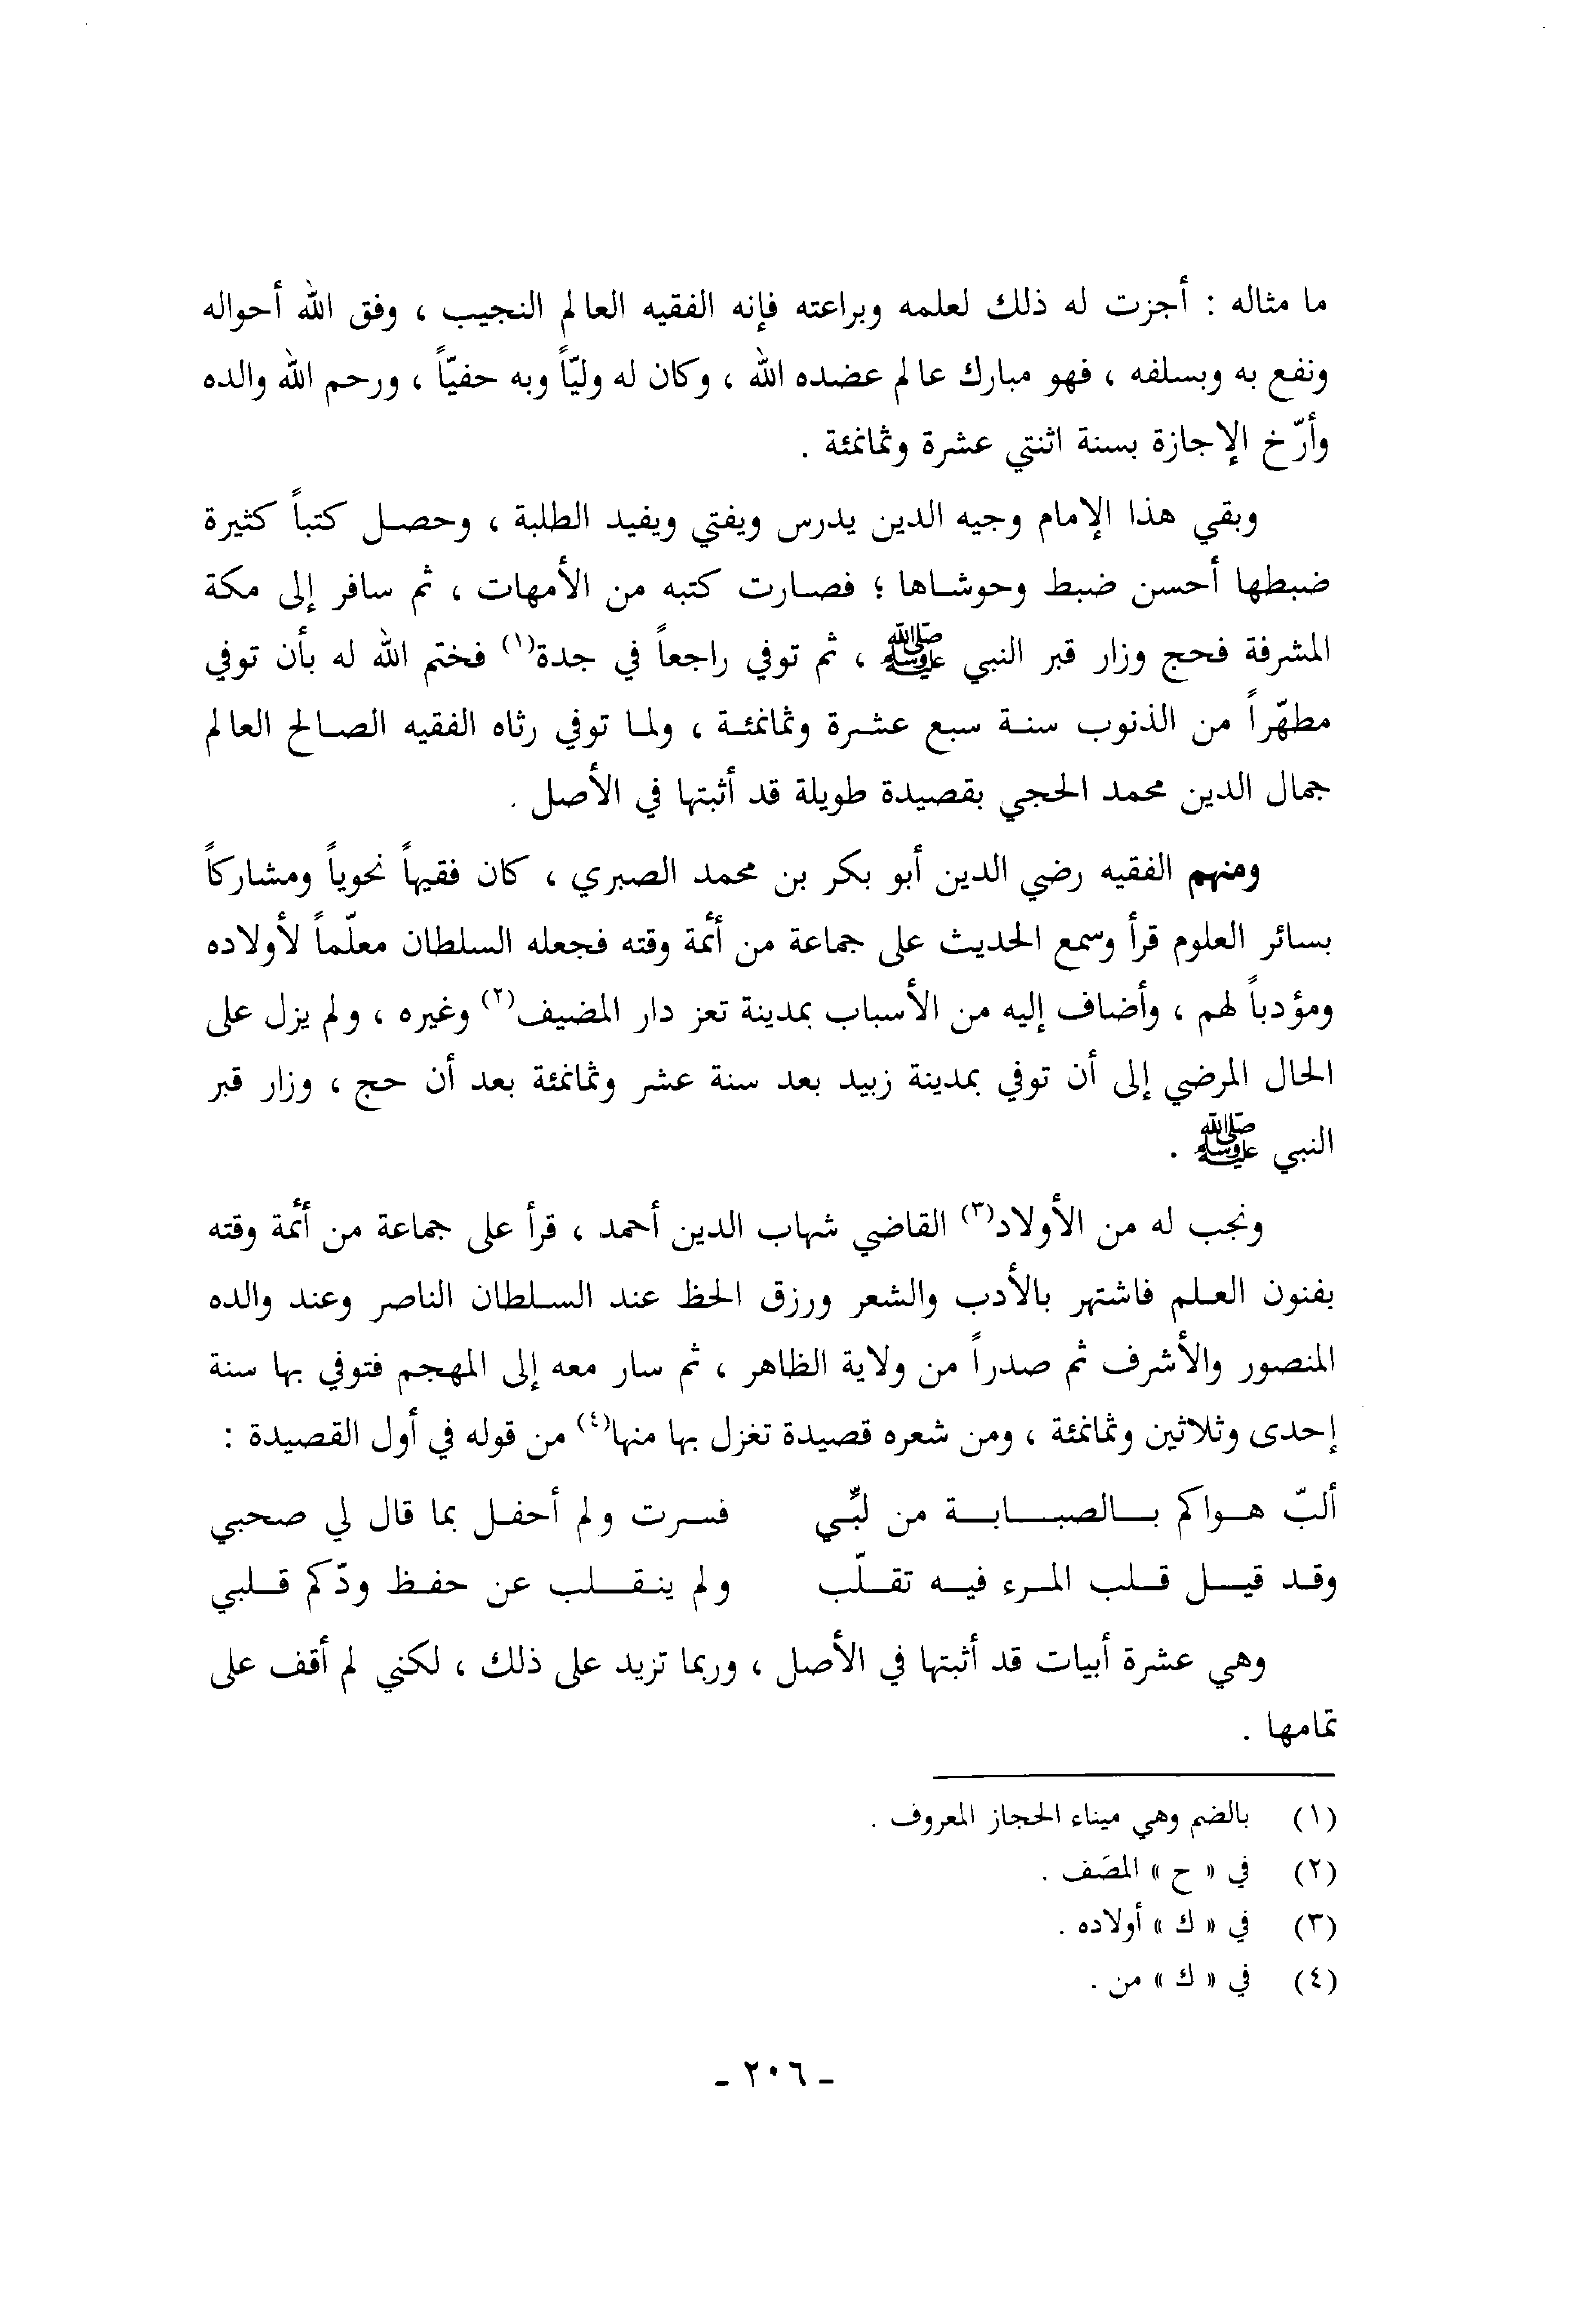 ما مثاله : أجزت له ذلك لعلمه وبراعته فإنه الفقيه العالم النجيب ، وفق الله أحواله
ونفع به وبسلفه ، فهو مبارك عالم عضده الله ، وكان له وليّاً وبه حفيّاً ، ورحم الله والده
وأرّخ الإجازة بسنة اثنتي عشرة وثمانمئة .
وبقي هذا الإمام وجيه الدين يدرس ويفتي ويفيد الطلبة ، وحصل كتباً كثيرة
ضبطها أحسن ضبط وحوشاها ؛ فصارت كتبه من الأمهات ، ثم سافر إلى مكة
المشرفة فحج وزار قبر النبي ﷺ ، ثم توفي راجعاً في جدة(١) فختم الله له بأن توفي
مطهّراً من الذنوب سنة سبع عشرة وثمانمئة ، ولما توفي رثاه الفقيه الصالح العالم
جمال الدين محمد الحجي بقصيدة طويلة قد أثبتها في الأصل .
ومنهم الفقيه رضي الدين أبو بكر بن محمد الصبري ، كان فقيهاً نحوياً ومشاركاً
بسائر العلوم قرأ وسمع الحديث على جماعة من أئمة وقته فجعله السلطان معلّماً لأولاده
ومؤدباً لهم ، وأضاف إليه من الأسباب بمدينة تعز دار المضيف(٢) وغيره ، ولم يزل على
الحال المرضي إلى أن توفي بمدينة زبيد بعد سنة عشر وثمانمئة بعد أن حج ، وزار قبر
النبي ﷺ .
ونجب له من الأولاد(٣) القاضي شهاب الدين أحمد ، قرأ على جماعة من أئمة وقته
بفنون العلم فاشتهر بالأدب والشعر ورزق الحظ عند السلطان الناصر وعند والده
المنصور والأشرف ثم صدراً من ولاية الظاهر ، ثم سار معه إلى المهجم فتوفي بها سنة
إحدى وثلاثين وثمانمئة ، ومن شعره قصيدة تغزل بها منها(٤) من قوله في أول القصيدة :
ألبّ هواكم بالصبابة من لبّي فسرت ولم أحفل بما قال لي صحبي
وقد قيل قلب المرء فيه تقلّب ولم ينقلب عن حفظ ودّكم قلبي
وهي عشرة أبيات قد أثبتها في الأصل ، وربما تزيد على ذلك ، لكني لم أقف على
تمامها .
(١) بالضم وهي ميناء الحجاز المعروف .
(٢) في « ح » المصَف .
(٣) في « ك » أولاده .
(٤) في « ك » من .
- ٢٠٦ -